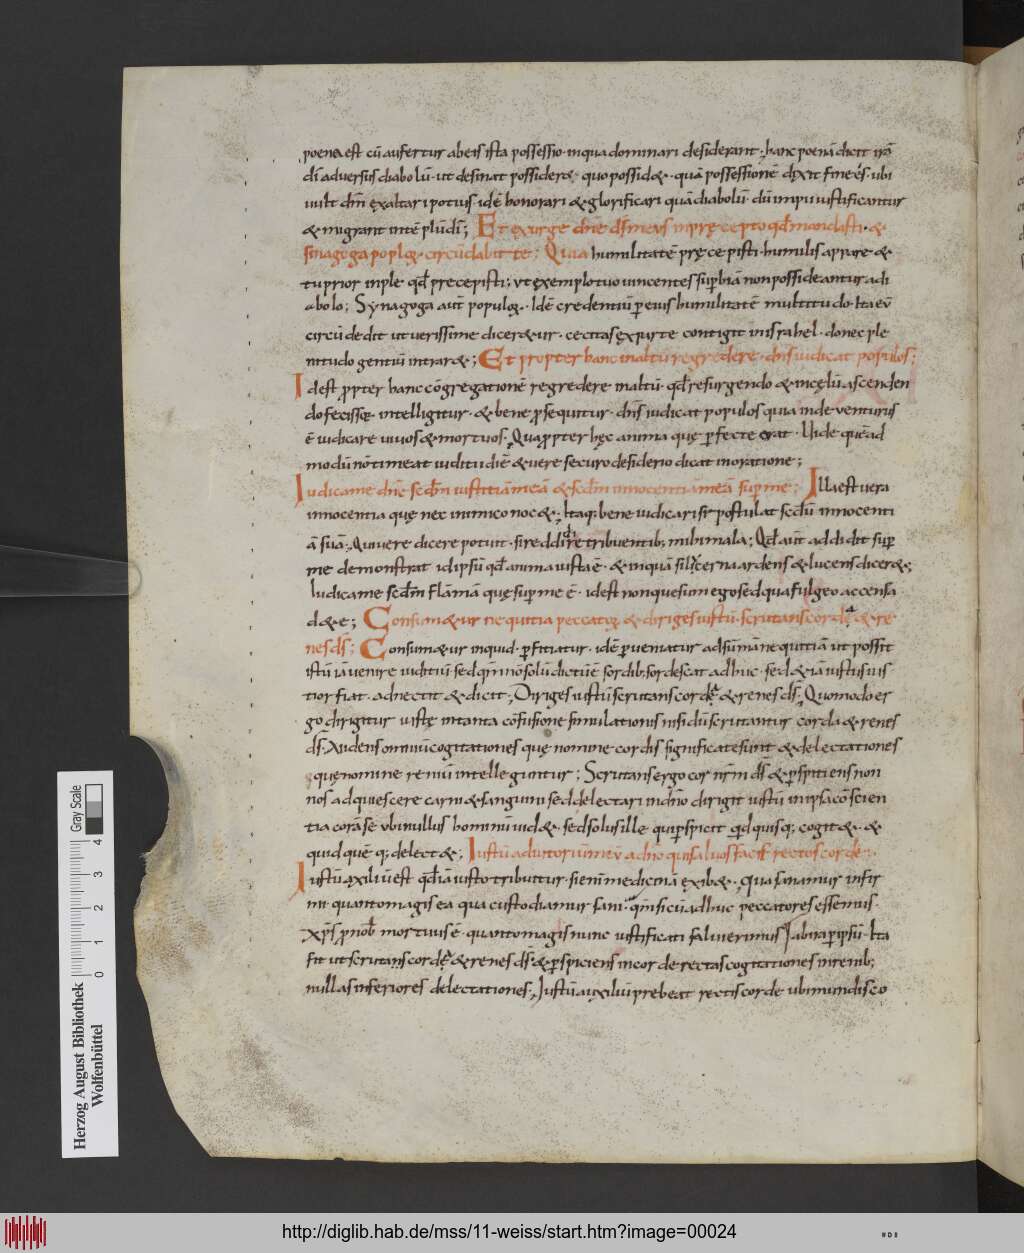 poena est cū aufertur ab eis ista possessio · in qua dominari desiderant · hanc poenā dicit irā
dī adversus diabolū · ut desinat possidere · quo possidet · quā possessionē dixit fines · ubi
vult dn̄m exaltari potius idē honorari & glorificari quā diabolū · dū impii iustificantur
& migrant inte plūdī; Et exurge dn̄e ds̄ meus in pręcepto qd̄ mandasti · &
sinagoga poploȝ circūdabit te; Quia humilitatē pręcepisti · humilis appare &
tu prior imple qd̄ precepisti; ut exemplo tuo vincentes superbiā non possideantur a di
abolo; Synagoga aut̄ populoȝ · Idē credentiū p eius humilitatē multitudo · Ita eū
circūdedit ut verissime diceretur · cecitas ex parte contigit in israhel · donec ple
nitudo gentiū intraret; Et propter hanc in altū regredere · dn̄s iudicat populos;
Idest ppter hanc cōgregationē regredere in altū · qd̄ resurgendo & in cęlū ascenden
do fecisse · intelligitur · & bene psequitur · dn̄s iudicat populos quia inde venturus
ē iudicare vivos & mortuos. Qua ppter hęc anima quę pfecte orat · Uide quēad
modū nō timeat iuditii diē & vere securo desiderio dicat in oratione;
Iudica me dn̄e scd̄m iustitiā meā & scd̄m innocentiā meā sup me; Illa est vera
innocentia quę nec inimico nocet · Itaq; bene iudicari se postulat scd̄m innocenti
ā suā; Qui vere dicere potuit · si reddidi retribuentib; mihi mala; Qd̄ aut̄ addidit sup
me demonstrat id ipsū qd̄ anima iusta ē · & inquā si lucerna ardens & lucens diceret;
Iudica me scd̄m flāmā quę sup me ē · idest non que sum ego sed qua fulgeo accensa
de te; Consumetur nequitia peccatoȝ & diriges iustū · scrutans corda & re
nes ds̄; Consumetur inquid · pficiatur · idē pveniatur ad sūmā nequitiā ut possit
istū iā venire iuditiū sed qm̄ nō solū dictū ē sordib; sordescat adhuc · sed & iā iustus ius
tior fiat · adnectit & dicit; Diriges iustū scrutans corda & renes ds̄; Quomodo er
go dirigitur iustę in tanta cōfusione simulationis nisi dū scrutantur corda & renes
ds̄; Videns omniū cogitationes quę nomine cordis significate sunt & delectationes
quę nomine reniū intelleguntur; Scrutans ergo cor nr̄m ds̄ & pspiciens non
nos adquiescere carni & sanguini sed delectari in dn̄o dirigit iustū in ipsa cōscien
tia corā se ubi nullus hominū videt · sed solus ille qui pspicit qd quisq; cogitet · &
quid quēq; delectet; Iustū adiutoriū meū a dn̄o qui salvos facit rectos corde;
Iustū auxiliū est qd̄ iā iusto tribuitur · si enī medicinā exibet · qua sanamur infir
mi · quanto magis ea qua custodiamur sani · qm̄ si cū adhuc peccatores essemus ·
xp̄s p nob̄ mortuus ē · quanto magis nunc iustificati salvi erimus ab ira p ipsū · Ita
fit ut scrutans corda & renes ds̄ & pspiciens in corde rectas cogitationes in renib;
nullas inferiores delectationes; Iustū auxiliū prebeat rectis corde ubi mundis co
Herzog August Bibliothek
Wolfenbüttel
Gray Scale
0 1 2 3 4
http://diglib.hab.de/mss/11-weiss/start.htm?image=00024